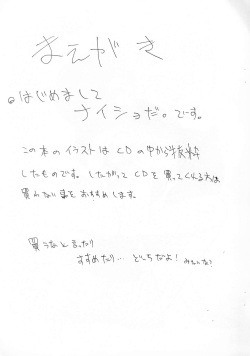 まえがき
◎はじめまして
ナイショだ。です。
この本のイラストはCDの中から抜粋
したものです。したがってCDを買ってくれる方は
買わない事をおすすめします。
買うなと言ったり
すすめたり… どっちだよ！みたいな？